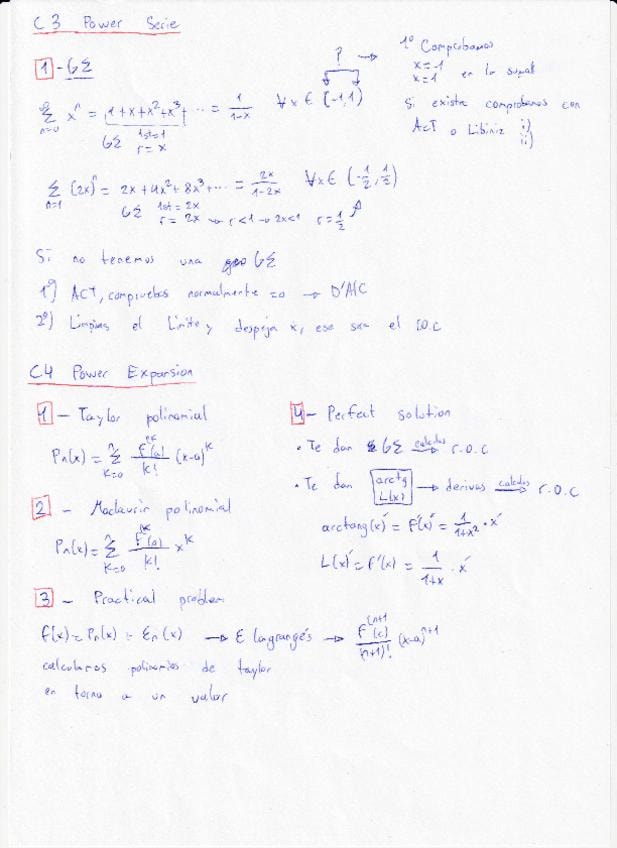 C3 Power Serie
1 - GΣ
? → 1º Comprobamos
x=-1
x=1 en la suma
Si existe comprobamos con
ACT o Libiniz i)
ii)
∞Σn=0 xⁿ = 1+x+x²+x³+ ... = 1/(1-x) ∀x ∈ [-1,1)
GΣ 1st=1
r=x
Σn=1 (2x)ⁿ = 2x+4x²+8x³+... = 2x/(1-2x) ∀x ∈ (-1/2, 1/2)
GΣ 1st=2x
r=2x → r<1 → 2x<1 r=1/2
Si no tenemos una GΣ
1º) ACT, compruebas normalmente =0 → D'AlC
2º) Limpias el límite y despeja x, ese sera el I.O.C
C4 Power Expansion
1 - Taylor polinomial
Pn(x) = nΣk=0 f^(k(a)/k! (x-a)^k
2 - Maclaurin polinomial
Pn(x) = nΣk=0 f^(k(a)/k! x^k
3 - Practical problem
f(x) = Pn(x) + En(x) → E lagrangés → f^(n+1(c)/(n+1)! (x-a)^n+1
calculamos polinomios de taylor
en torno a un valor
4 - Perfect solution
• Te dan GΣ calculas → r.O.C
• Te dan arctg L(x) → derivas calculas → r.O.C
arctang(x)' = f'(x)' = 1/(1+x²) · x'
L(x)' = f'(x) = 1/(1+x) · x'